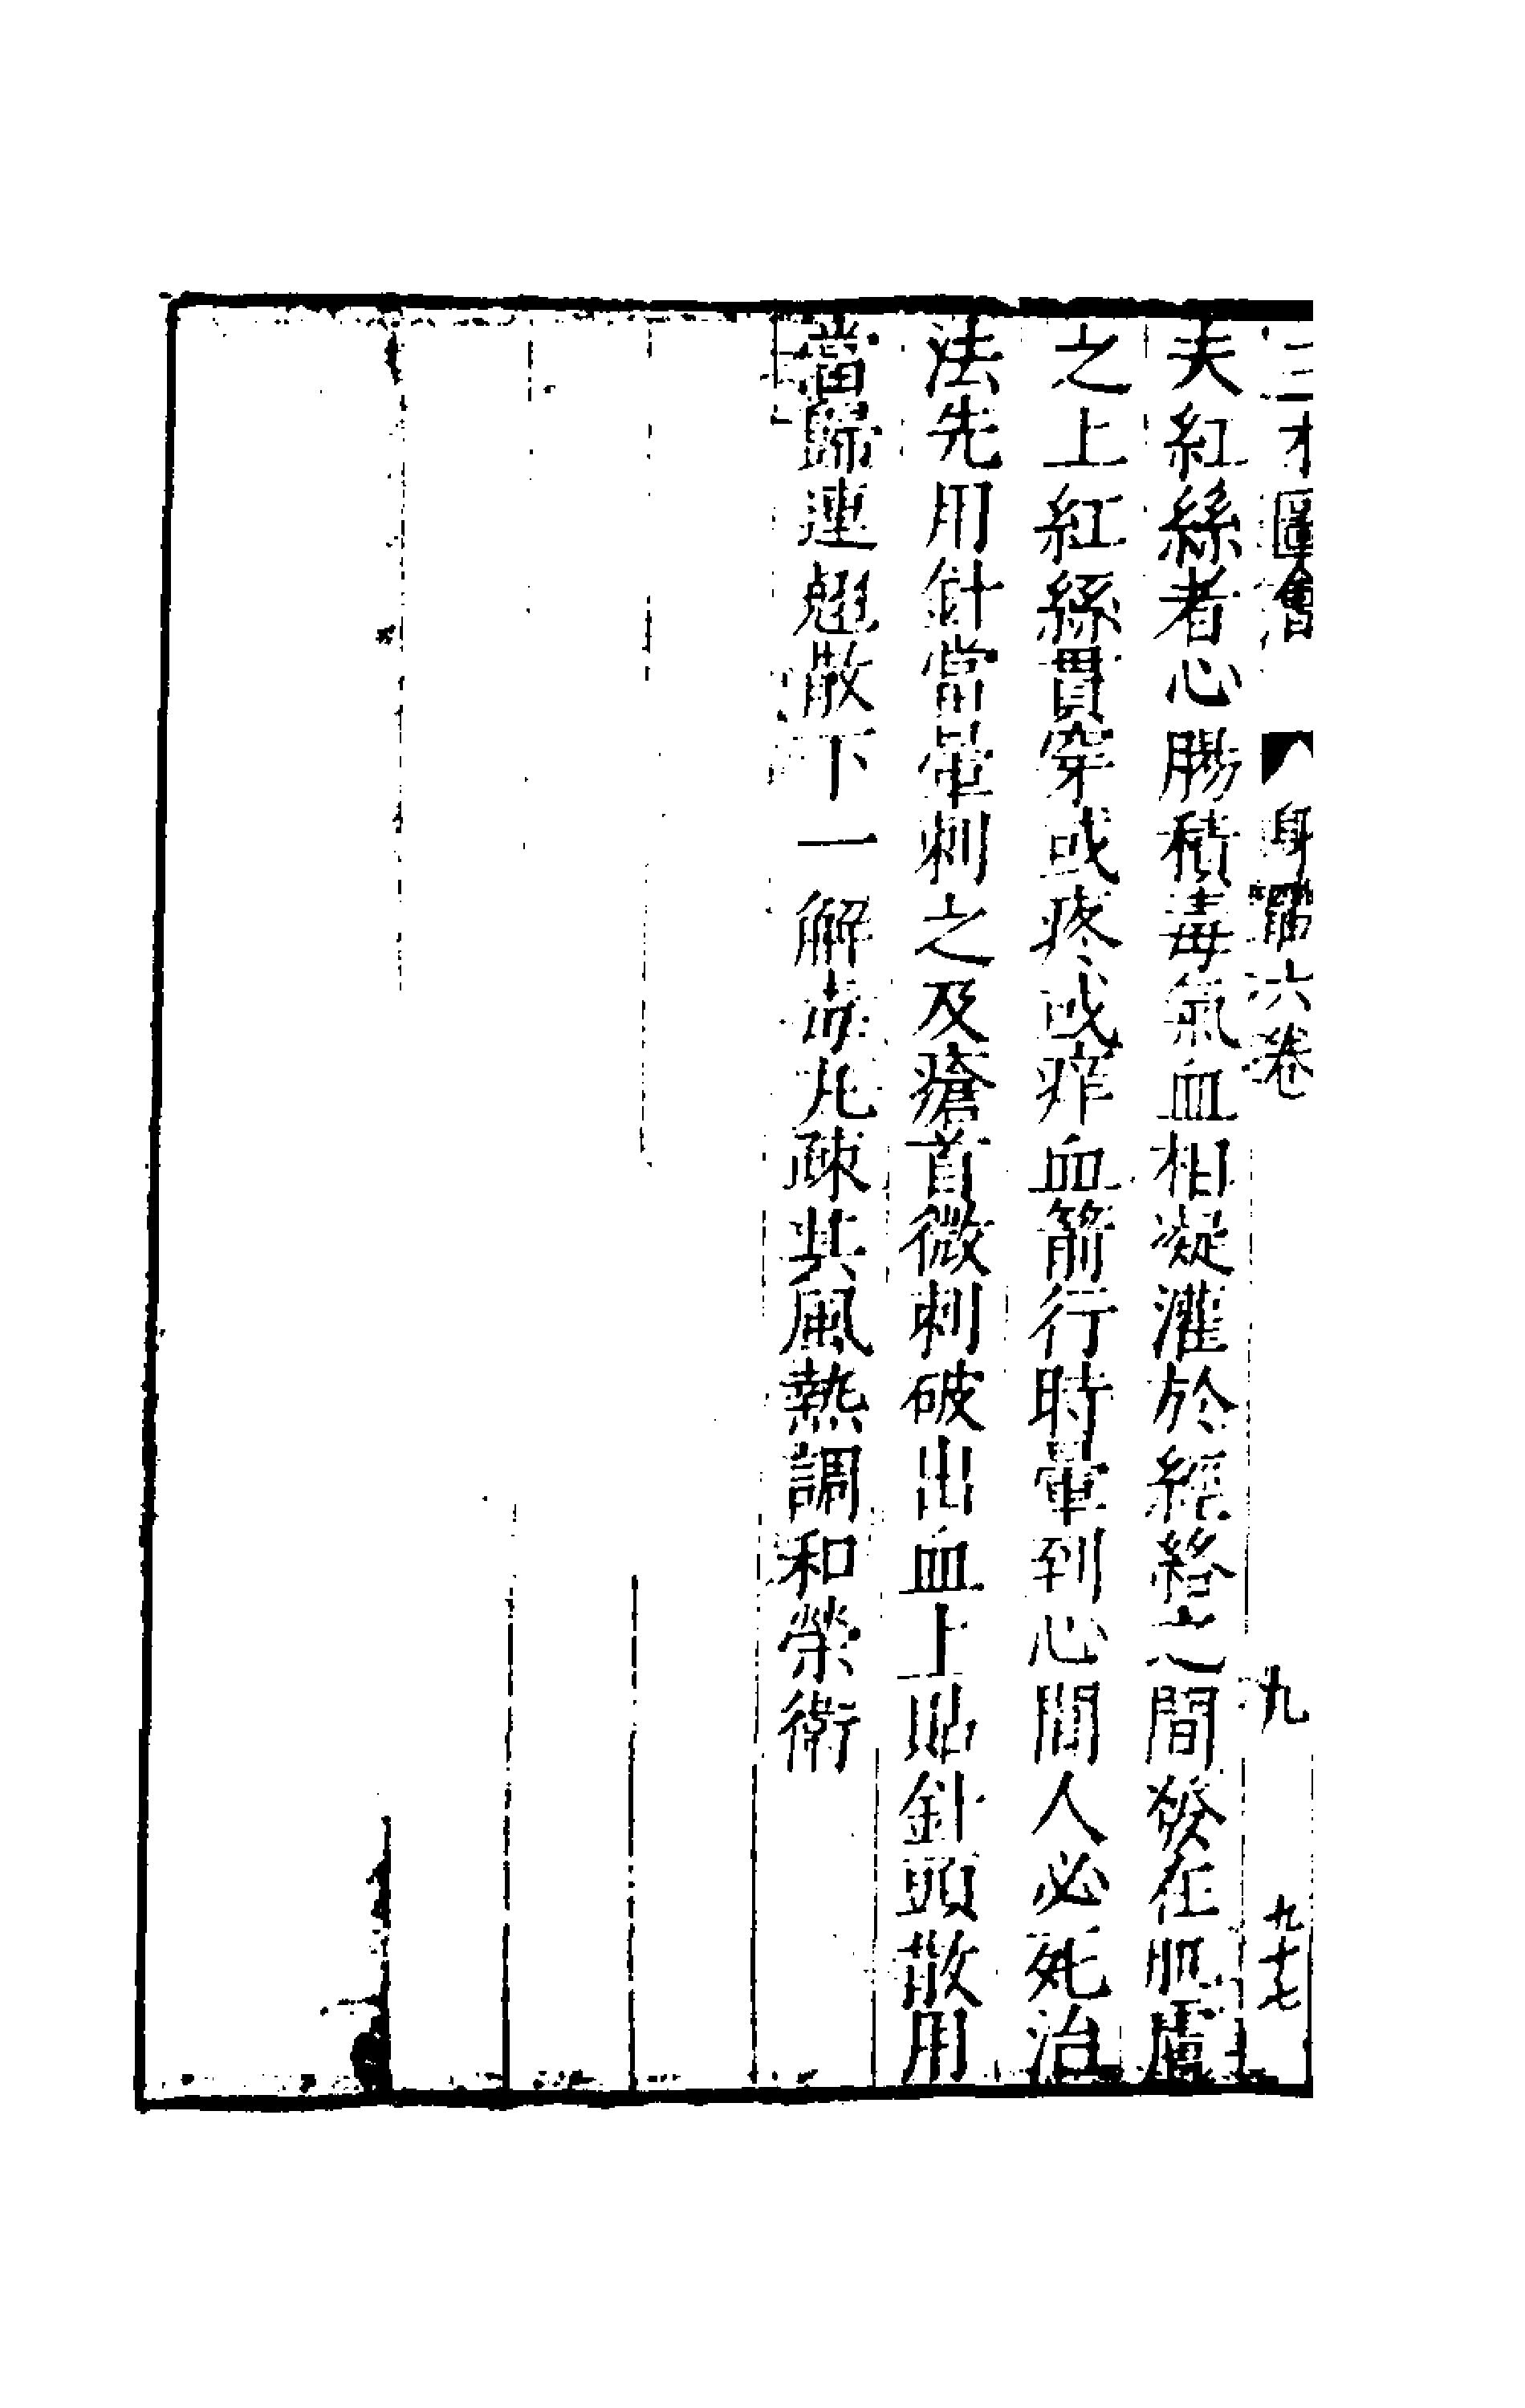 三才圖會 身體六卷 九 九十七
夫紅絲者心腸積毒氣血相凝灌於經絡之間發在肌膚
之上紅絲貫穿或疼或痄血箭行時暈到心間人必死治
法先用針當暈刺之及瘡首微刺破出血上貼針頭散用
當歸連翹散下一解毒丸疎其風熱調和榮衛